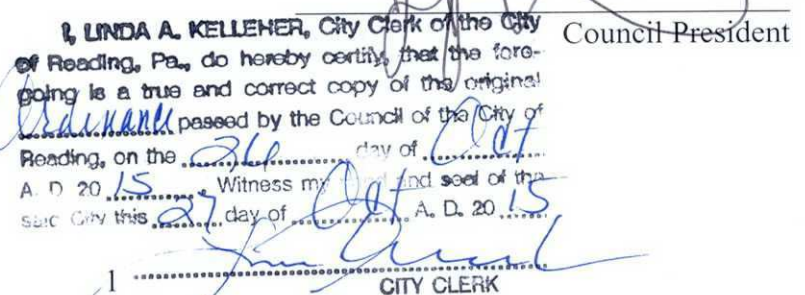 I, LINDA A. KELLEHER, City Clerk of the City
Council President
of Reading, Pa., do hereby certify, that the fore-
going is a true and correct copy of the original
Ordinance passed by the Council of the City of
Reading, on the 26 day of Oct
A. D. 20 15. Witness my hand and seal of the
said City this 27 day of Oct A. D. 20 15.
1
CITY CLERK